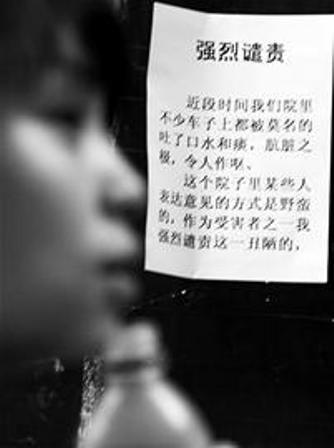 强烈谴责
近段时间我们院里
不少车子上都被莫名的
吐了口水和痰，肮脏之
极，令人作呕。
这个院子里某些人
表达意见的方式是野蛮
的，作为受害者之一我
强烈谴责这一丑陋的，